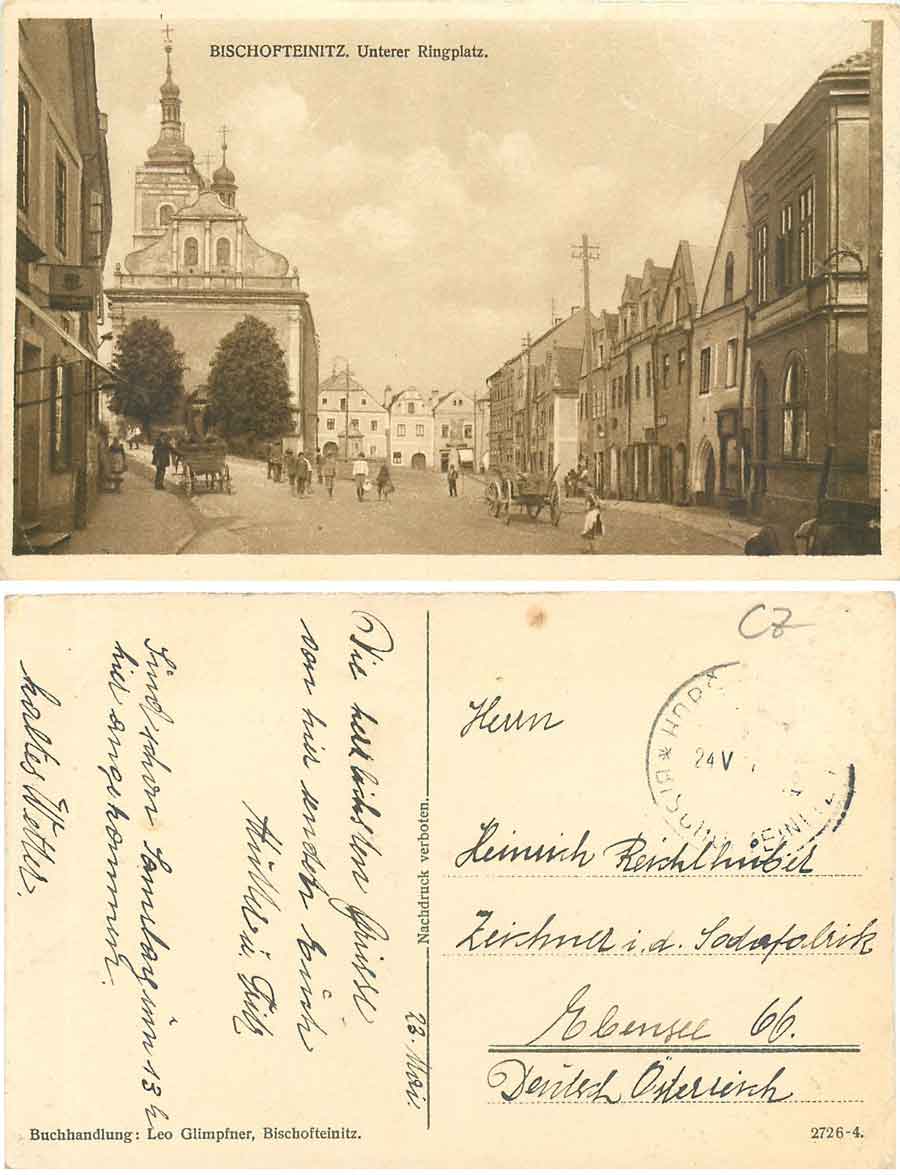 BISCHOFTEINITZ. Unterer Ringplatz.
CZ
24 V
Herrn
Heinrich Reichlhuber
Zeichner i. d. Sodafabrik
Ebensee 66.
Deutsch Österreich
Nachdruck verboten.
23. Mai.
Die herzlichsten Grüsse
von hier senden Euch
Mutter u. Fritz
Sind schon Samstag um 13 h
hier angekommen.
kaltes Wetter.
Buchhandlung: Leo Glimpfner, Bischofteinitz.
2726-4.